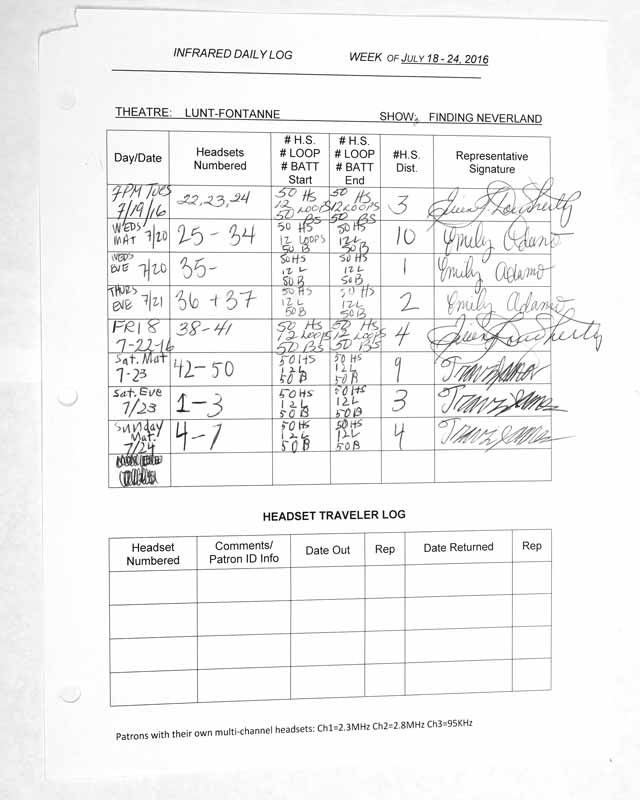 INFRARED DAILY LOG WEEK OF JULY 18 - 24, 2016
THEATRE: LUNT-FONTANNE SHOW: FINDING NEVERLAND
Day/Date Headsets Numbered # H.S. # LOOP # BATT Start # H.S. # LOOP # BATT End #H.S. Dist. Representative Signature
7PM TUES 7/19/16 22,23,24 50 HS 12 LOOPS 50 BS 50 HS 12 LOOPS 50 BS 3
WEDS MAT 7/20 25 - 34 50 HS 12 LOOPS 50 B 50 HS 12 L 50 B 10 Emily Adamo
WEDS EVE 7/20 35- 50 HS 12 L 50 B 50 HS 12 L 50 B 1 Emily Adamo
THURS EVE 7/21 36 + 37 50 HS 12 L 50 B 50 HS 12 L 50 B 2 Emily Adamo
FRI 8 7-22-16 38-41 50 HS 12 LOOPS 50 BS 50 HS 12 LOOPS 50 BS 4
Sat. Mat 7-23 42-50 50 HS 12 L 50 B 50 HS 12 L 50 B 9
Sat. Eve 7/23 1-3 50 HS 12 L 50 B 50 HS 12 L 50 B 3
Sunday Mat. 7/24 4-7 50 HS 12 L 50 B 50 HS 12 L 50 B 4
HEADSET TRAVELER LOG
Headset Numbered Comments/ Patron ID Info Date Out Rep Date Returned Rep
Patrons with their own multi-channel headsets: Ch1=2.3MHz Ch2=2.8MHz Ch3=95KHz